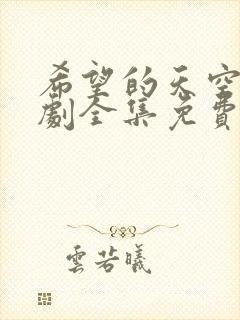 希望的天空
劇全集免費
雲若曦